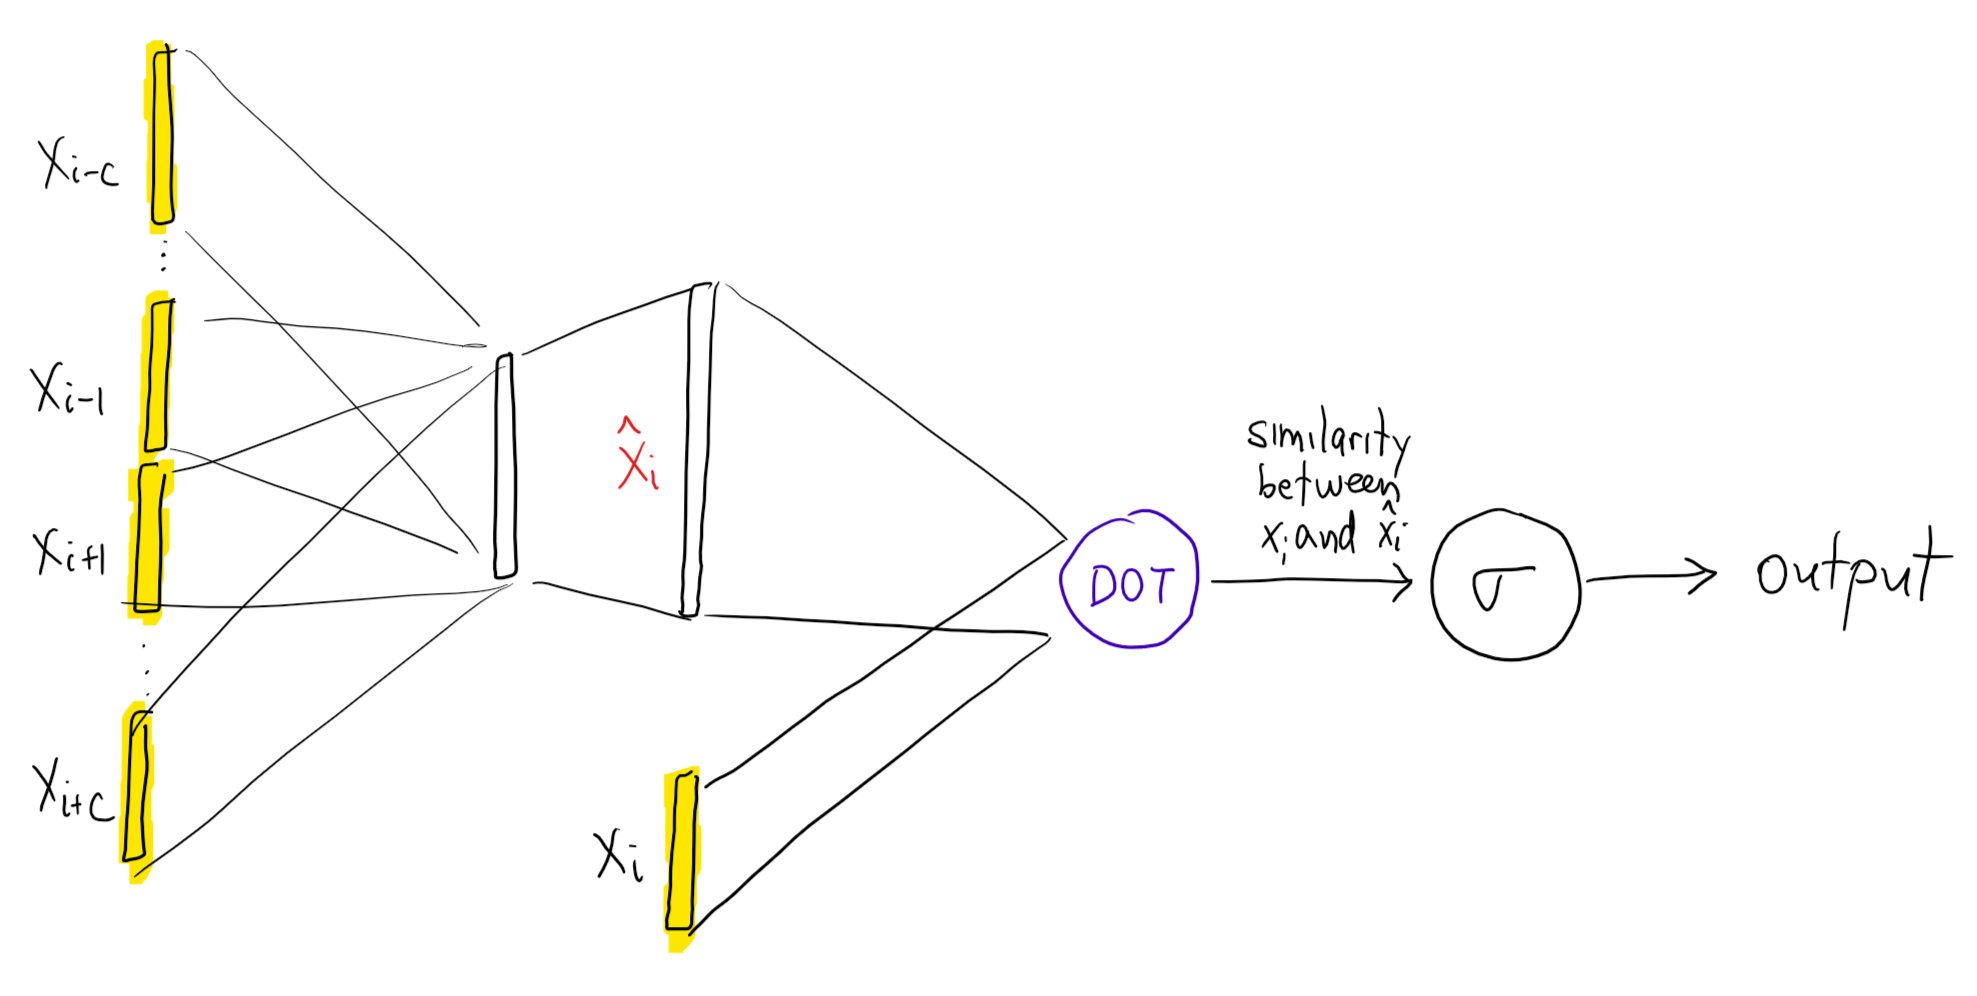 Xi-c
Xi-1
Xi+1
Xi+c
x̂i
Xi
DOT
similarity
between
xi and x̂i
σ
output